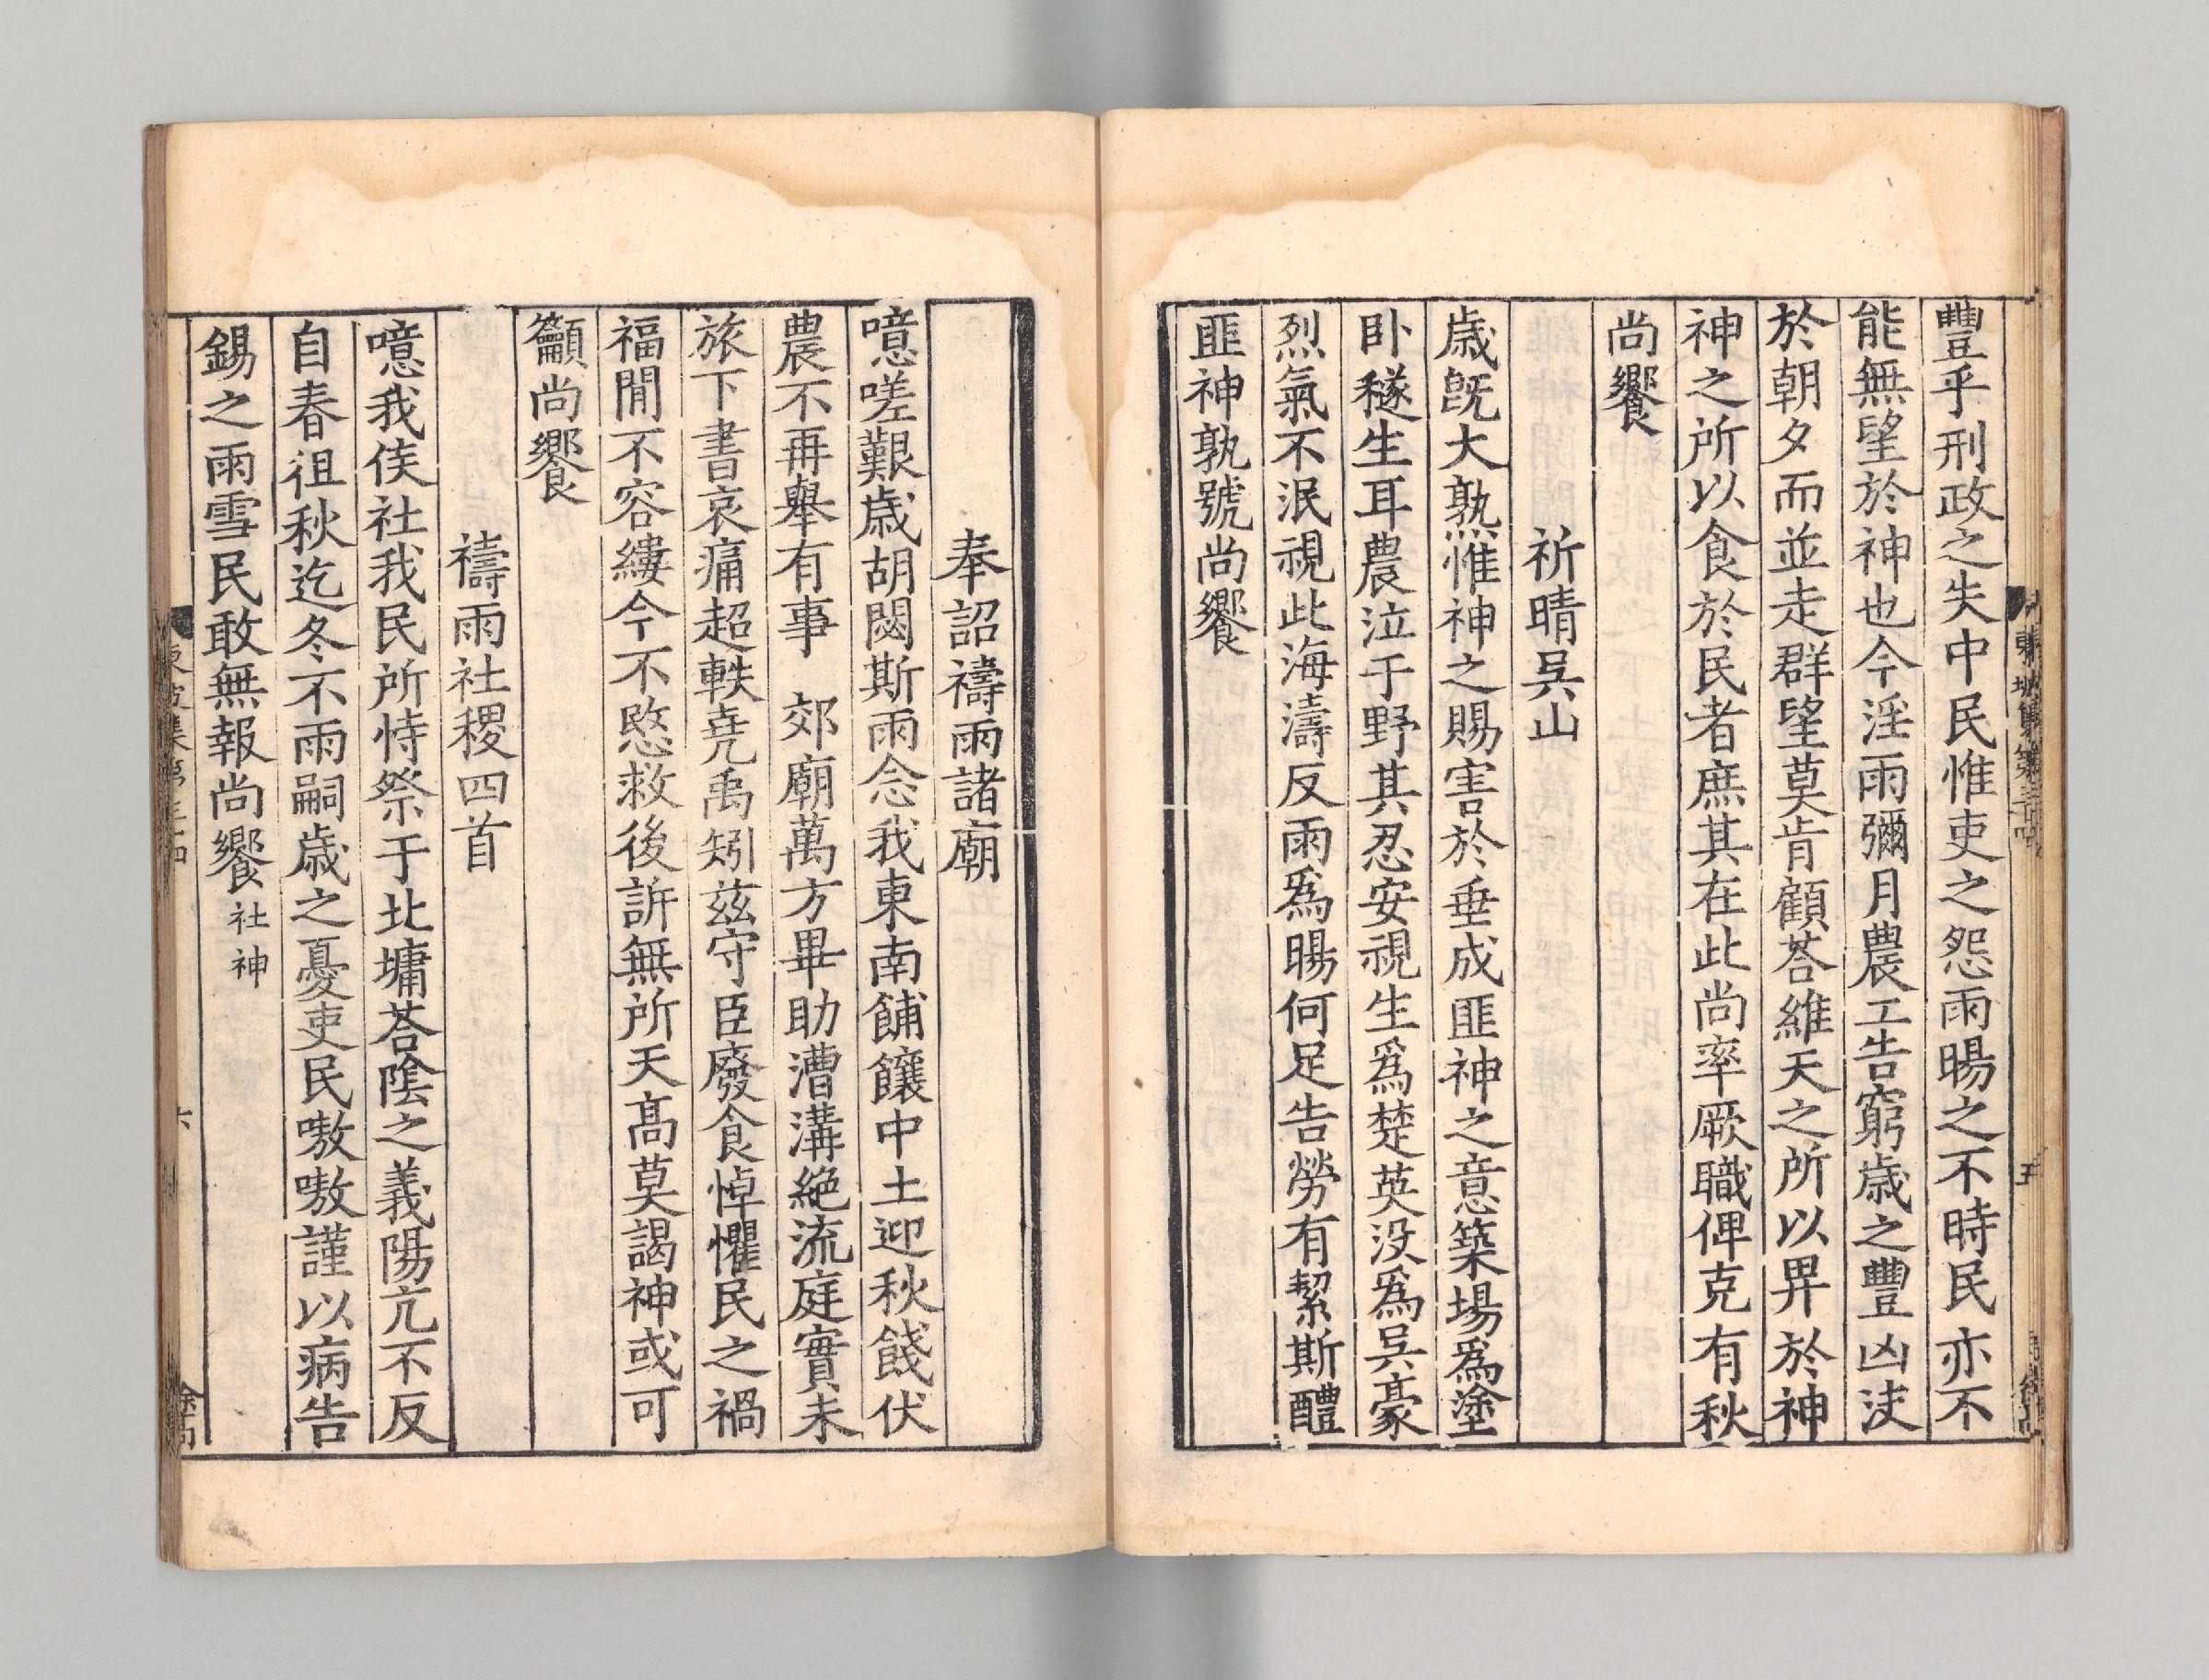 豐乎刑政之失中民惟吏之怨雨暘之不時民亦不
能無望於神也今淫雨彌月農工告窮歲之豐凶決
於朝夕而並走群望莫肯顧荅維天之所以畀於神
神之所以食於民者庶其在此尚率厥職俾克有秋
尚饗
祈晴吳山
歲旣大熟惟神之賜害於垂成匪神之意築場爲塗
卧穟生耳農泣于野其忍安視生爲楚英没爲吳豪
烈氣不泯視此海濤反雨爲暘何足告勞有絜斯醴
匪神孰號尚饗
奉詔禱雨諸廟
噫嗟艱歲胡閟斯雨念我東南餔饟中土迎秋餞伏
農不再舉有事　郊廟萬方畢助漕溝絕流庭實未
旅下書哀痛超軼堯禹矧茲守臣廢食悼懼民之禍
福閒不容縷今不愍救後訴無所天高莫謁神或可
籲尚饗
禱雨社稷四首
噫我侯社我民所恃祭于北墉荅隂之義陽亢不反
自春徂秋迄冬不雨嗣歲之憂吏民嗷嗷謹以病告
錫之雨雪民敢無報尚饗 社神
六
五